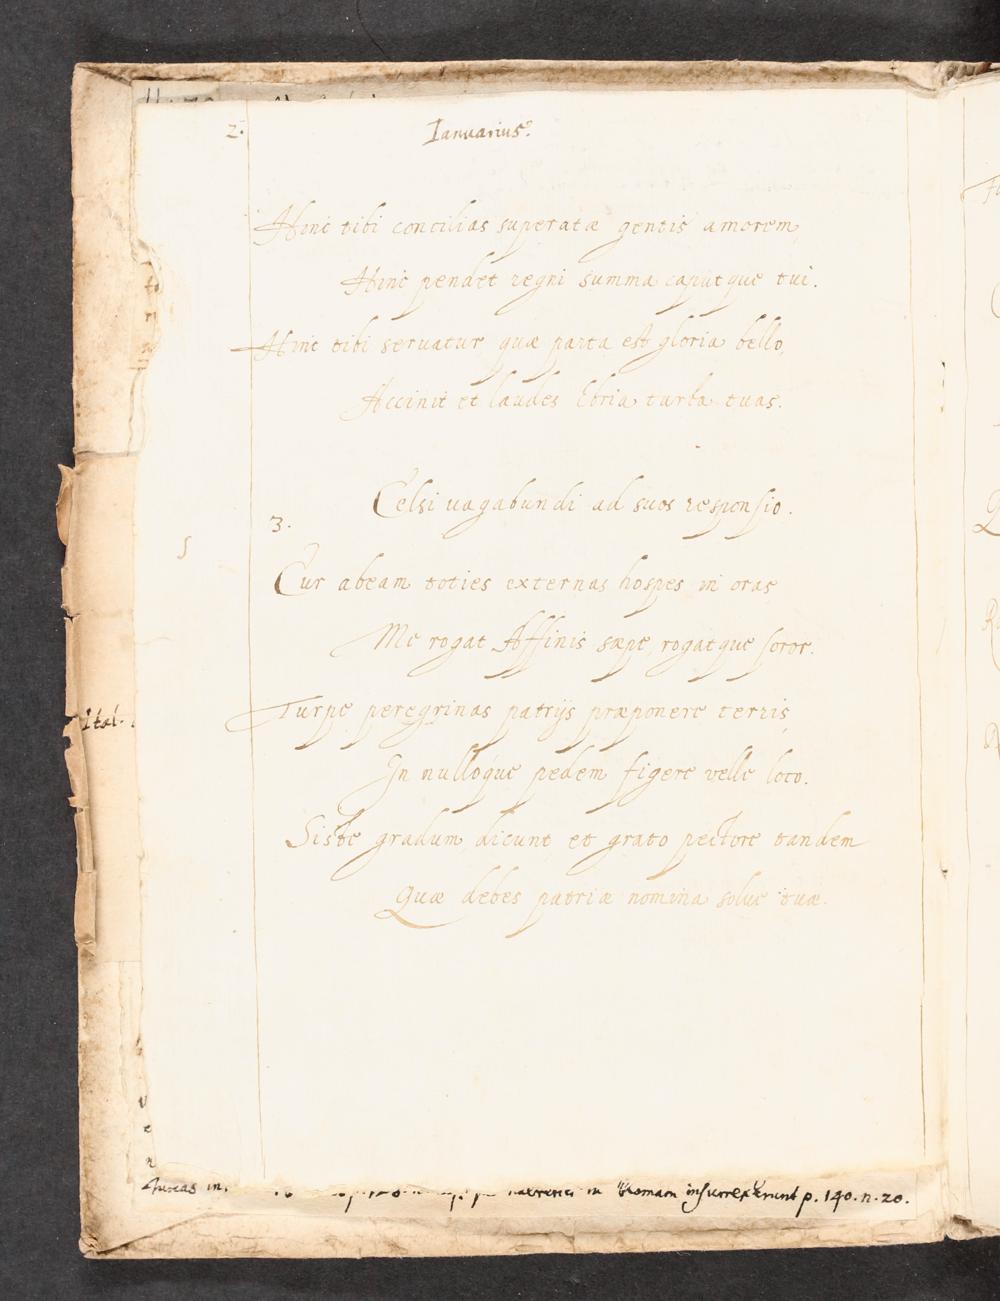 2.
Ianuarius.
Hinc tibi concilias superatæ gentis amorem,
Hinc pendet regni summa caputque tui.
Hinc tibi seruatur quæ parta est gloria bello,
Accinit et laudes Ebria turba tuas.
Celsi uagabundi ad suos responsio.
3.
Cur abeam toties externas hospes in oras
Me rogat Affinis sæpe, rogatque soror.
Turpe peregrinas patrijs præponere terris,
In nulloque pedem figere velle loco.
Siste gradum, dicunt et grato pectore tandem
Quæ debes patriæ nomina solue tuæ.
Ital.
in Romam insurrexerunt p. 140. n. 20.